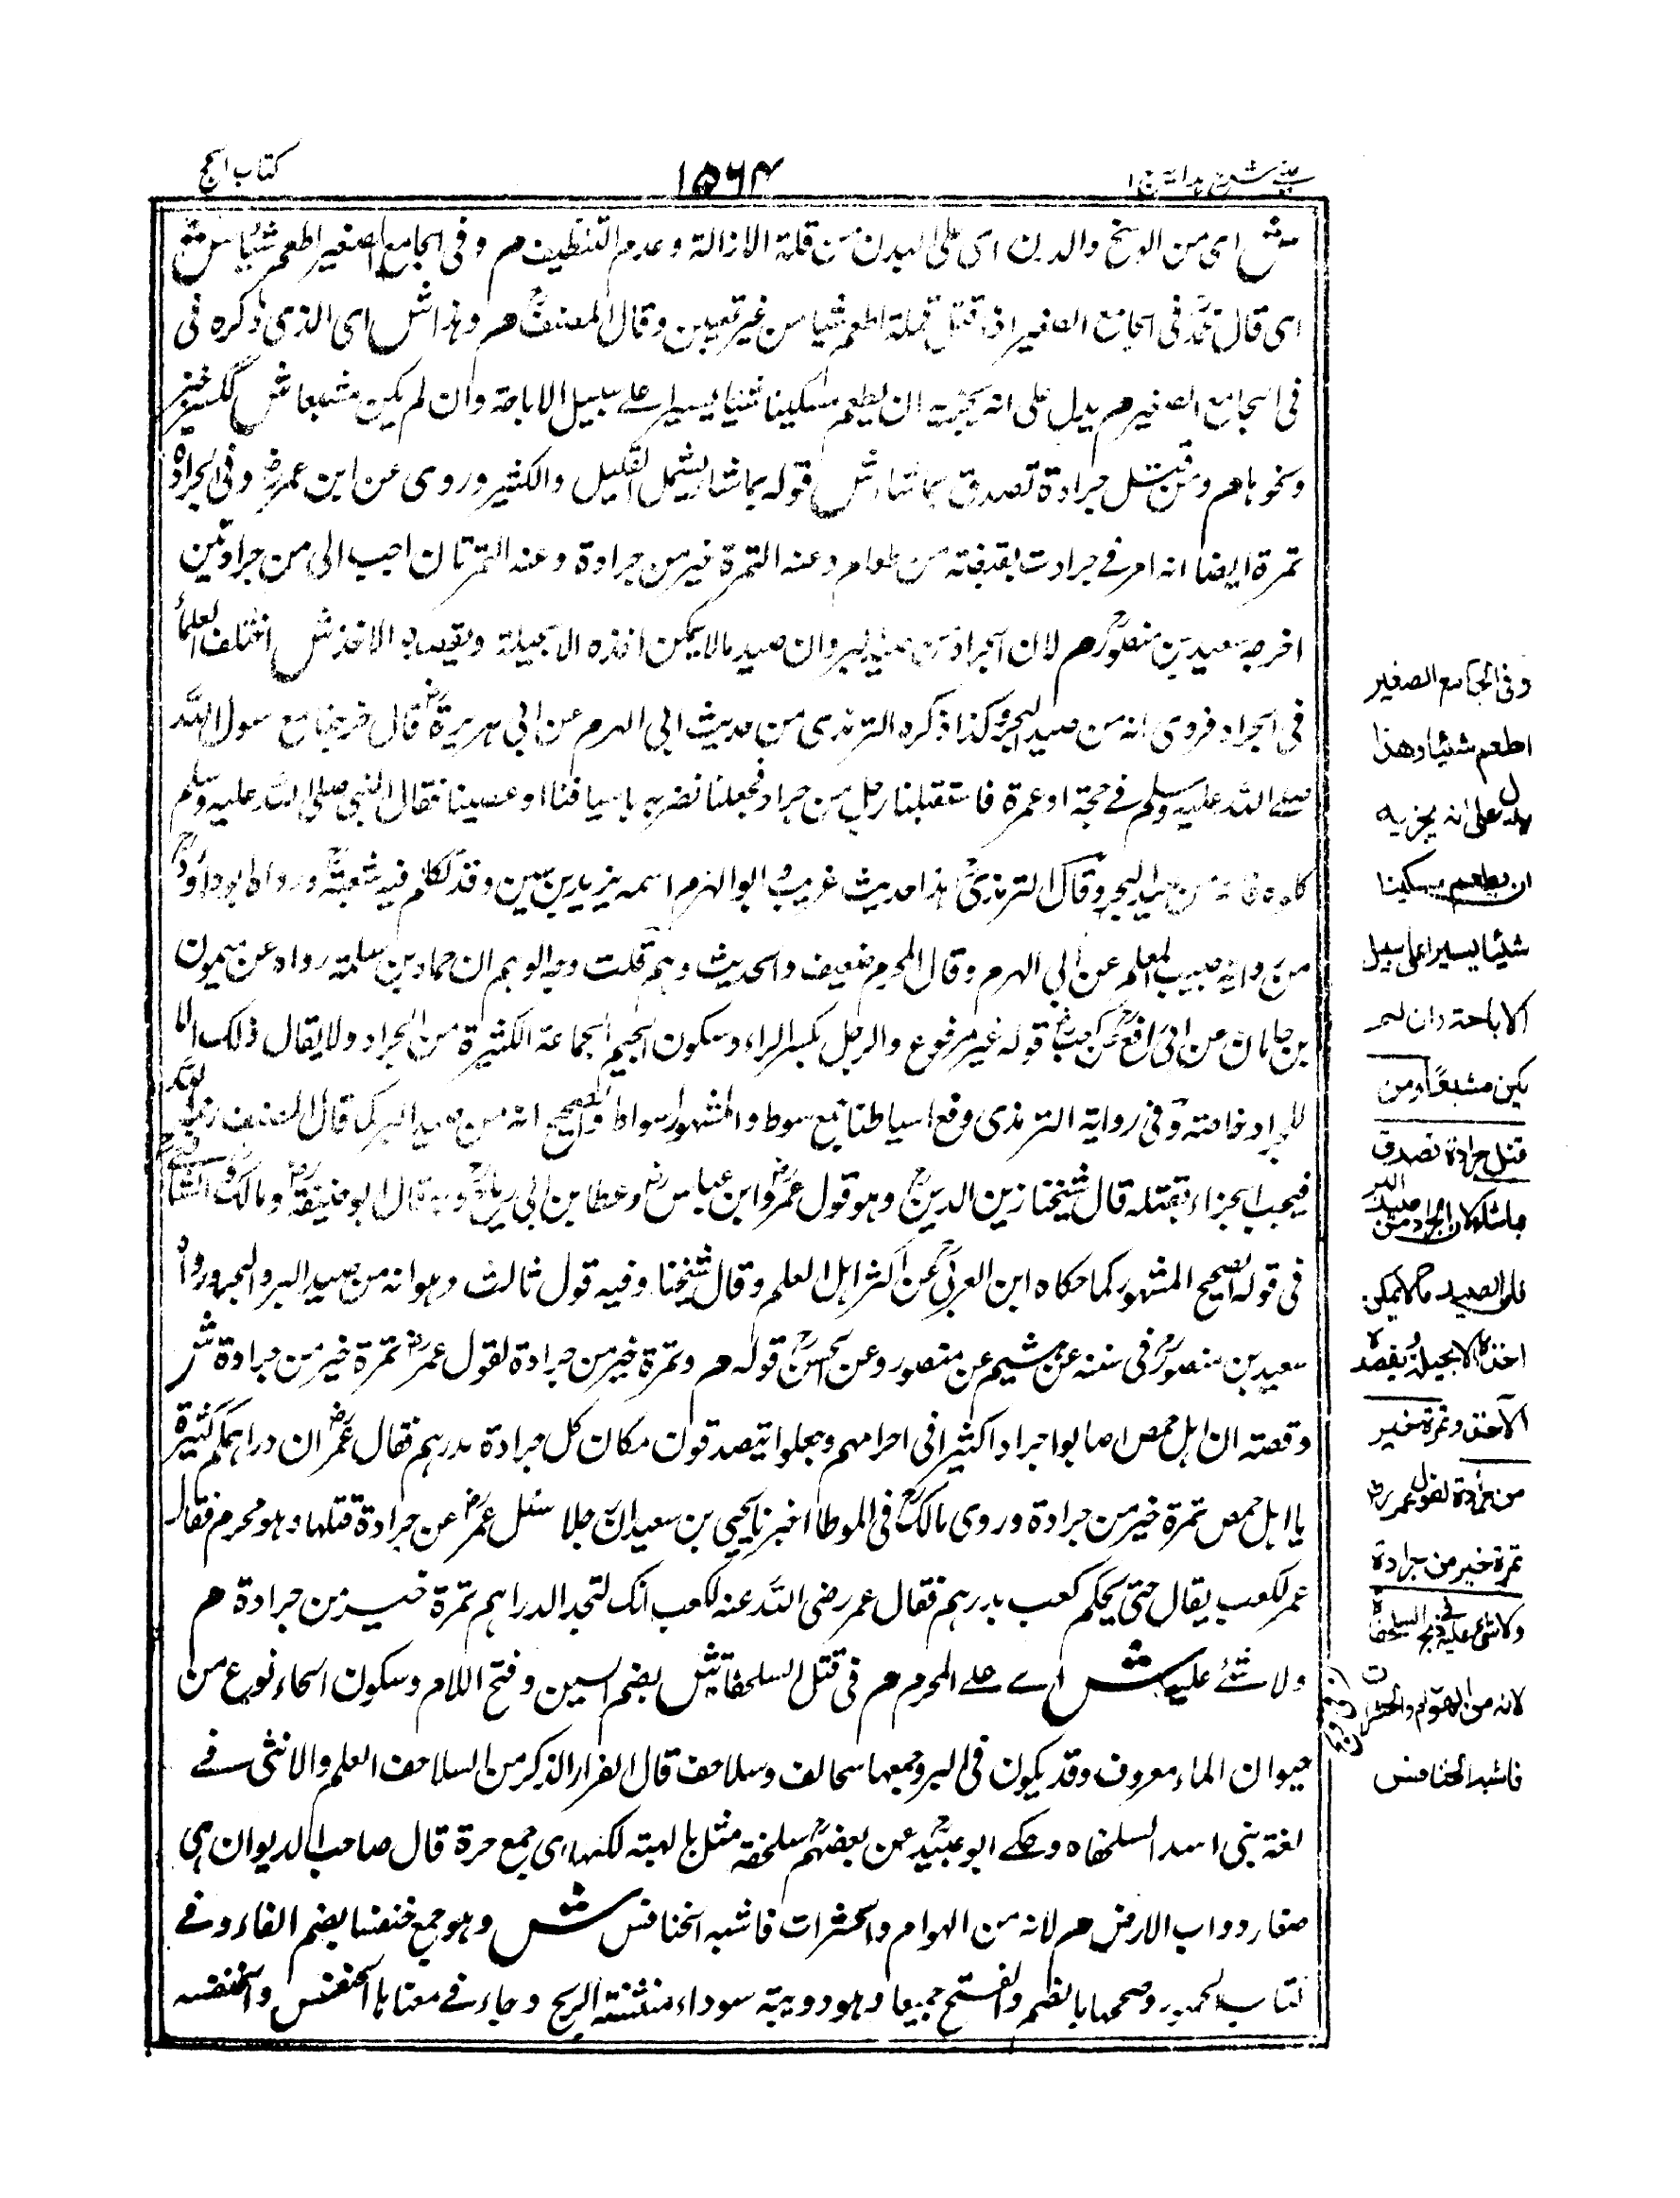 عینی شرح ہدایہ ج ۱
۱۵۶۴
کتاب الحج
ش ای من الوسخ والدرن ای علی البدن من قلة الازالة وعدم التنظیف م وفی الجامع الصغیر اطعم شیئا ش
ای قال محمدؒ فی الجامع الصغیر اذا قتل قملة اطعم شیئا من غیر تعیین وقال المصنفؒ م وهذا ش ای الذی ذکره فی
فی الجامع الصغیر م یدل علی انه یجزیه ان یطعم مسکینا شیئا یسیرا علے سبیل الاباحة وان لم یکن مشبعا ش ککسرة خبز
ونحوها م ومن قتل جرادة تصدق بما شاء ش قوله بما شاء یشمل القلیل والکثیر وروی عن ابن عمرؓ وفی الجرادة
تمرة ایضا انه امر فے جرادت بقبضة من طعام وعنه التمرة خیر من جرادة وعنه التمرتان احب الی من جرادتین
اخرجه سعید بن منصورؒ م لان الجراد من صید البر وان صید مالا یمکن اخذه الا بحیلة ویقصده الاخذ ش اختلف العلماء
فی الجراد فروی انه من صید البحر وکذا ذکره الترمذی من حدیث ابی المهزم عن ابی هریرةؓ قال خرجنا مع رسول الله
صلے الله علیه وسلم فے حجة او عمرة فاستقبلنا رجل من جراد فجعلنا نضربه باسیافنا او عصینا فقال النبی صلی الله علیه وسلم
کلوه فانه من صید البحر وقال الترمذیؒ هذا حدیث غریب وابو المهزم اسمه یزید بن سفین وقد تکلم فیه شعبةؒ ورواه ابوداودؒ
من روایة حبیب المعلم عن ابی المهزم وقال المحرم ضعیف والحدیث وهم قلت وجه الوهم ان حماد بن سلمة رواه عن میمون
بن جابان عن ابی رافع عن کعب قوله غیر مرفوع والرجل بکسر الراء وسکون الجیم الجماعة الکثیرة من الجراد ولا یقال ذلک الا
للجراد خاصة وفی روایة الترمذی وقع اسیاطنا جمع سوط والمشهور اسواط والصحیح انه من صید البر کما قال المصنف رحمه الله
فیجب الجزاء بقتله قال شیخنا زین الدینؒ وهو قول عمرؓ وابن عباسؓ وعطا بن ابی رباحؒ وبه قال ابو حنیفةؒ ومالکؒ والشافعیؒ
فی قوله الصحیح المشهور کما حکاه ابن العربیؒ عن اکثر اهل العلم وقال شیخنا وفیه قول ثالث وهو انه من صید البر والبحر رواه
سعید بن منصورؒ فی سننه عن هشیم عن منصور وعن الحسنؒ قوله م وتمرة خیر من جرادة لقول عمرؓ تمرة خیر من جرادة ش
وقصته ان اهل حمص اصابوا جرادا کثیرا فی احرامهم وجعلوا یتصدقون مکان کل جرادة بدرهم فقال عمرؓ ان دراهمکم کثیرة
یا اهل حمص تمرة خیر من جرادة وروی مالکؒ فی الموطا اخبرنا یحیی بن سعید ان رجلا سئل عمرؓ عن جرادة قتلها وهو محرم فقال
عمر لکعب یقال حتی یحکم کعب بدرهم فقال عمر رضی الله عنه لکعب انک لتجد الدراهم تمرة خیر من جرادة م
ولا شئ علیه ش اے علے المحرم م فی قتل السلحفاة ش بضم السین وفتح اللام وسکون الحاء نوع من
حیوان الماء معروف وقد یکون فی البر وجمعها سحالف وسلاحف قال الفراء الذکر من السلاحف الغلم والانثی فے
لغة بنی اسد السلحفاه وحکے ابو عبیدؒ عن بعضهم سلحفة مثل بالهمته لکنها ای جمع حرة قال صاحب الدیوان هی
صغار دواب الارض م لانه من الهوام والحشرات فاشبه الخنافس ش وهو جمع خنفسا بضم الفاء وفے
کتاب الحمید وصححها بالضم والفتح جمیعا وهو دویبة سوداء منتنة الریح وجاء فے معناها الخنفس والخنفسه
وفی الجامع الصغیر
اطعم شیئا وهذا
یدل علی انه یجزیه
ان یطعم مسکینا
شیئا یسیرا علی سبیل
الاباحة وان لم
یکن مشبعًا ومن
قتل جرادة تصدق
بما شاء لان الجراد من صید البر
فان الصید ما لا یمکن
اخذه الا بحیلة ویقصده
الآخذ وتمرة خیر
من جرادة لقول عمر رض
تمرة خیر من جرادة
ولا شئ علیه فی ذبح السلحفاة
لانه من الهوام والحشرات
فاشبه الخنافس